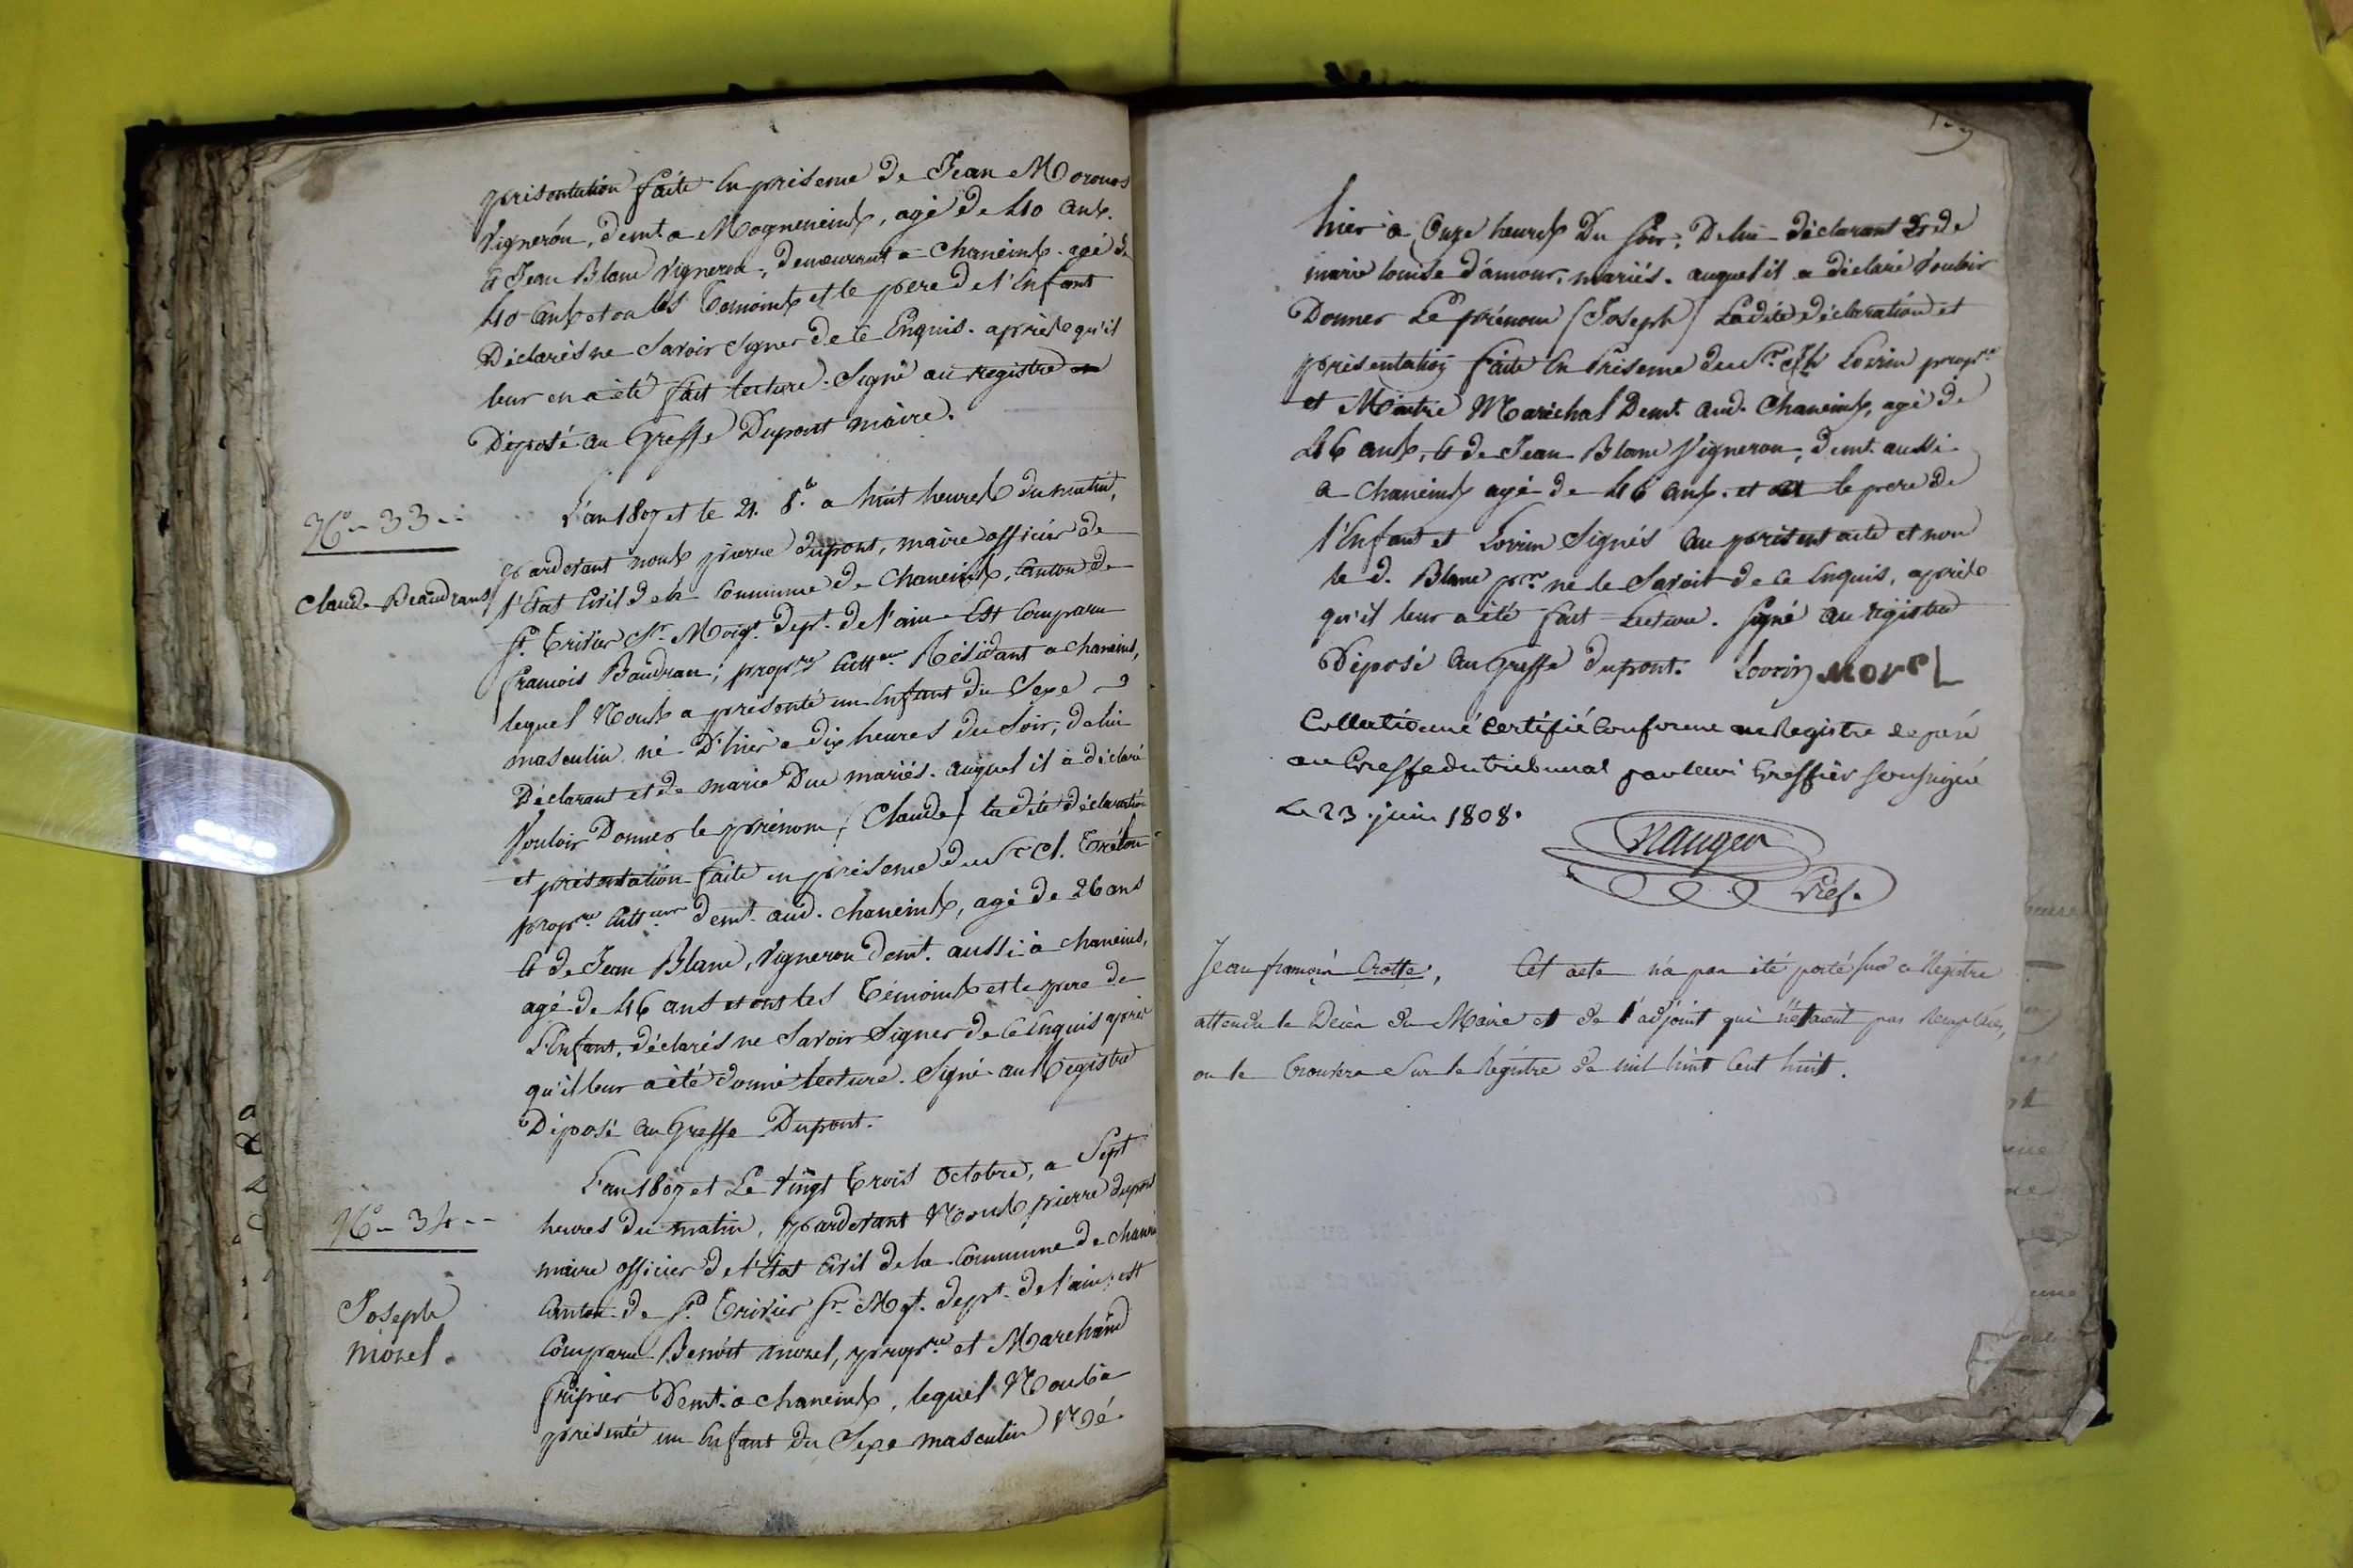 présentation faite en présence de Jean
Vigneron, demt. a Mogneneins, agé de 40 ans.
& Jean Blanc Vigneron, demeurant a Chaneins. agé de
40 ans et ont les Temoins et le pere de l'Enfant
Déclarés ne Savoir Signer de ce Enquis. après qu'il
leur en a été fait lecture. Signé au registre
Déposé au Greffe Dupont maire.
No. 33.
Claude Beaudrans
L'an 1807 et le 21. 8.e a huit heures du matin,
pardevant nous pierre dupont, maire officier de
l'Etat Civil de la Commune de Chaneins, Canton de
St. Trivier Sr. Moigt. dept. de l'ain Est Comparu
francois Baudran, propre. Cultteur Résidant a Chaneins,
lequel Nous a présenté un Enfant du Sexe
masculin né D'hier a dix heures du Soir, de lui
Déclarant et de marie Duc mariés. auquel il a déclaré
Vouloir Donner le prénom (Claude) ladite déclaration
et présentation faite en présence du Sr. Cl.
propre. Culteur demt. aud. Chaneins, agé de 26 ans
& de Jean Blanc, Vigneron demt. aussi à Chaneins,
agé de 46 ans et ont les Témoins et le pere de
L'Enfant, déclarés ne Savoir Signer de ce Enquis après
qu'il leur a été donné lecture. Signé au Registre
Déposé au Greffe Dupont.
No. 34.
Joseph
morel.
L'an 1807 et Le Vingt trois Octobre, a Sept
heures du matin, pardevant Nous pierre dupont
maire officier de l'Etat Civil de la Commune de Chaneins
Canton de St. Trivier Sr. Mgt. dept. de l'ain, est
Comparu Benoit morel, propre. et Marchand
fripier Demt. a Chaneins, lequel Nous a
présenté un Enfant du Sexe masculin Né
hier a Onze heures Du Soir, De lui déclarant & de
marie louise d'amour, mariés. auquel il a déclaré Vouloir
Donner Le prénom (Joseph) Ladite déclaration et
présentation faite en Présence du Sr. Jh Lovrin propre.
et Maitre Maréchal Demt. aud. Chaneins, agé de
46 ans, & de Jean Blanc Vigneron, demt. aussi
a Chaneins agé de 46 ans. et le pere de
l'Enfant et Lovrin Signés au présent acte et non
le d. Blanc pr. ne le Savoir de ce Enquis, après
qu'il leur a été fait Lecture. Signé au Régistre
Déposé au Greffe dupont. Lovrin morel
Collationné certifié conforme au Registre déposé
au Greffe du tribunal par Greffier soussigné
Le 23 juin 1808.
Jean françois Crotte, Cet acte n'a pas été porté sur ce Régistre
attendu le Décès du Maire et de l'adjoint qui n'étaient pas Remplacés,
on le trouvera sur le Régistre de mil huit Cent huit.